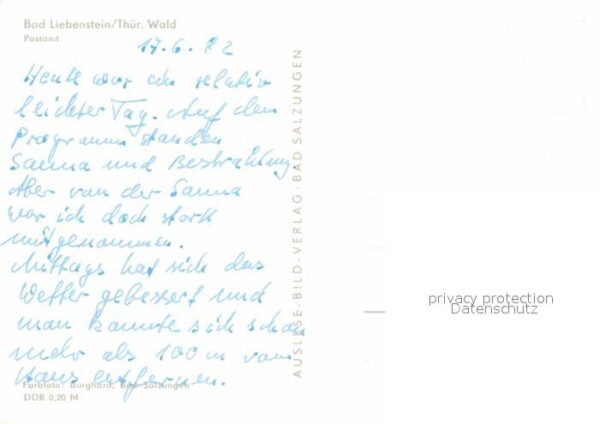 Bad Liebenstein/Thür. Wald
Postamt
17.6.82
Heute war ein relativ
leichter Tag. Auf dem
Programm standen
Sauna und Bestrahlung
Aber von der Sauna
war ich doch stark
mitgenommen.
Mittags hat sich das
Wetter gebessert und
man konnte sich schon
mehr als 100 m vom
Haus entfernen.
Farbfoto: Burghard, Bad Salzungen
DDR 0,20 M
AUSLESE-BILD-VERLAG · BAD SALZUNGEN
privacy protection
Datenschutz